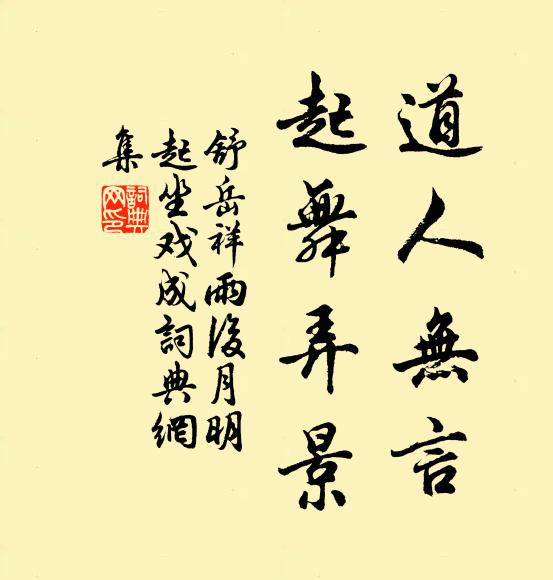 道人無言
起舞弄景
舒岳祥雨後月明
起坐戏成詞典網
集
詞典
网印